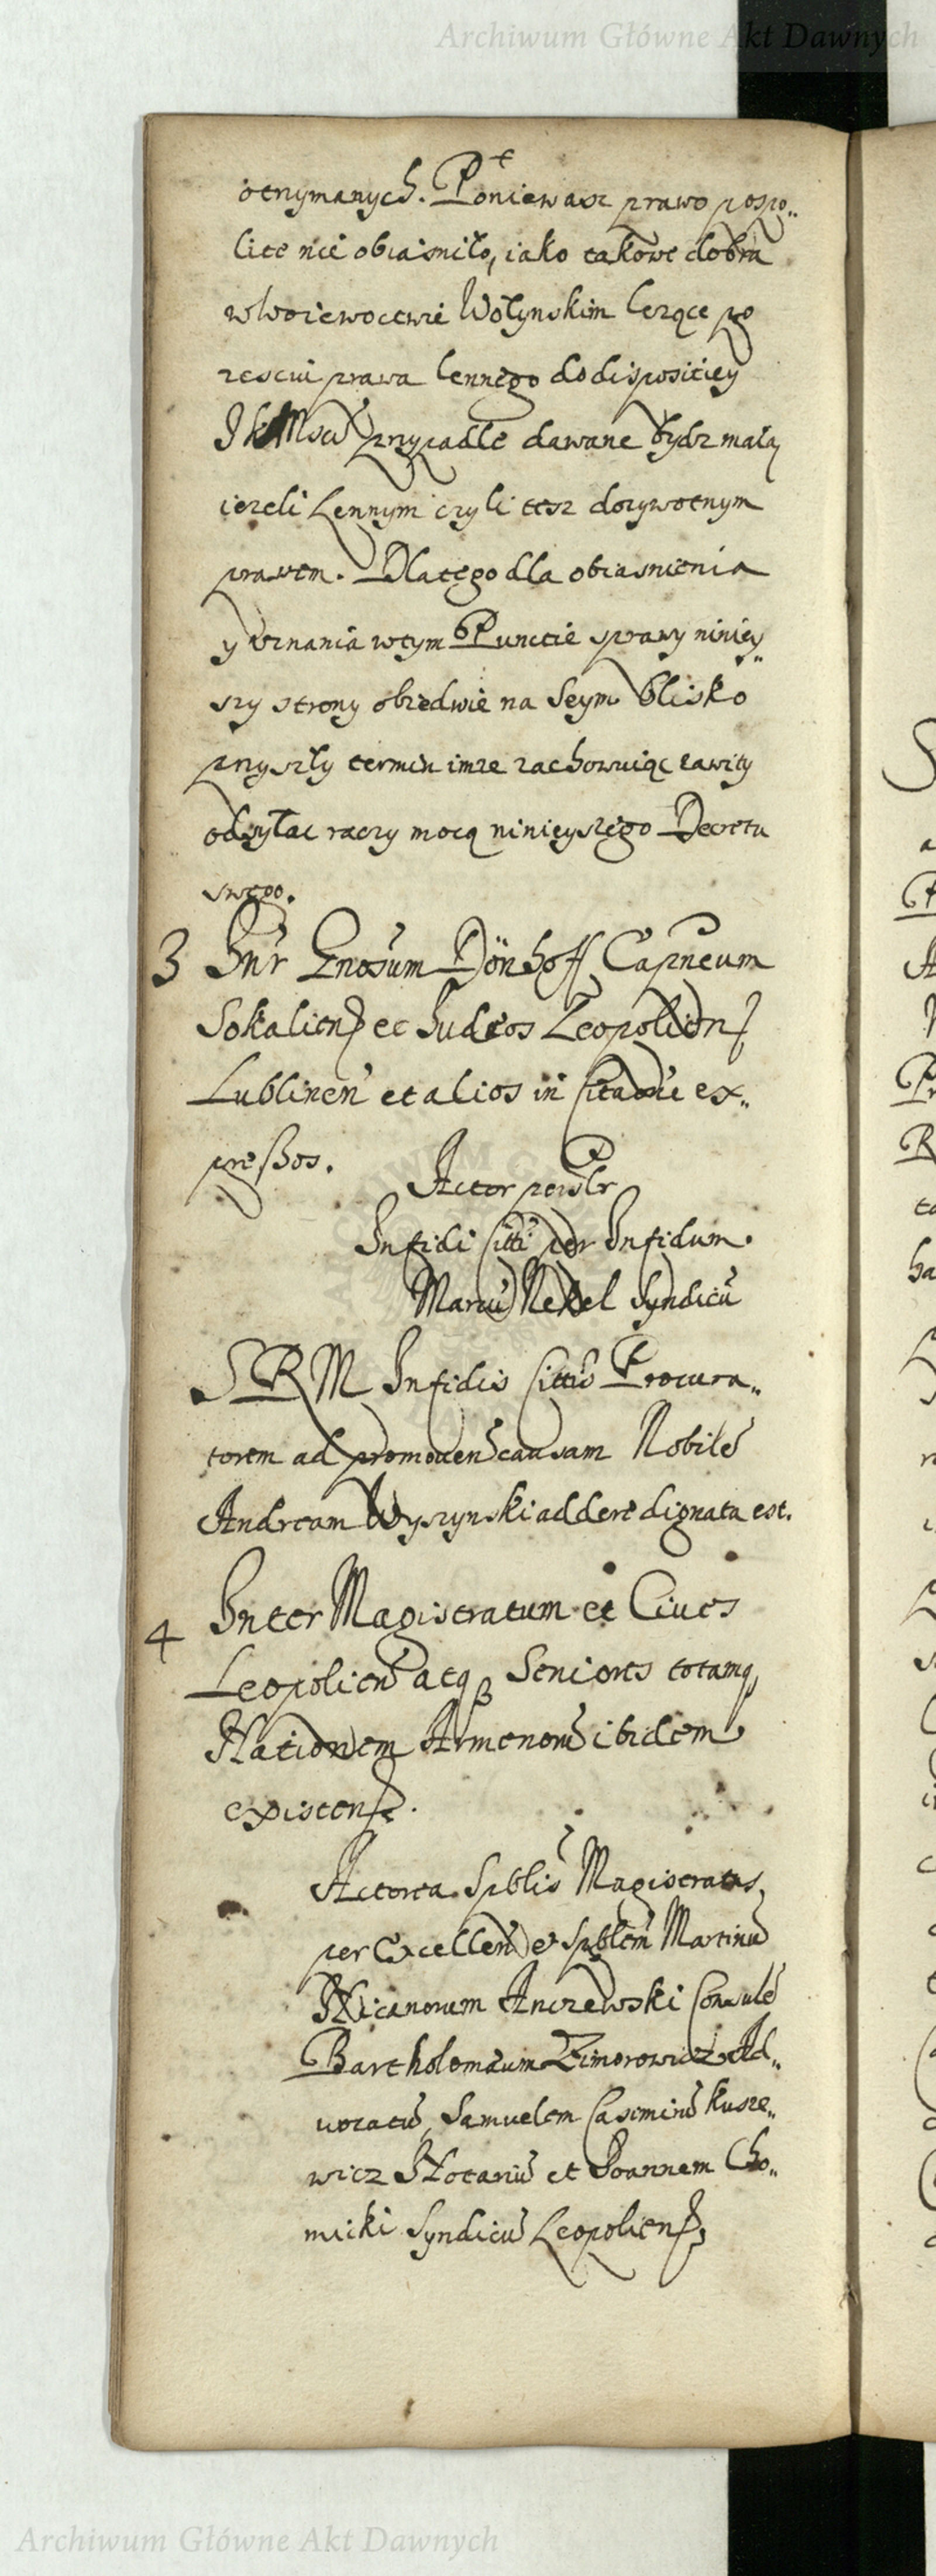 Archiwum Główne Akt Dawnych
otrzymanych. Poniewasz prawo pospo„
lite nie obiasniło, iako takowe dobra
w Woiewoctwie Wołynskim lezące po
zesciu prawa lennego do dispositiey
JKMsci przypadłe dawane bydz maią
iezeli Lennym czyli tesz dozywotnym
prawem. Dlatego dla obiasnienia
y uznania w tym Punctie sprawy niniey„
szy strony obiedwie na Seym blisko
przyszły termin imze zachowuiąc zawity
odsyłac raczy mocą ninieyszego Decretu
swego.
3 Intr Gnosum Dönhoff Capneum
Sokalien et Iudeos Leopolien
Lublinen et alios in Citaone ex„
pressos.
Actor persolr
Instidi Citti per Instidum
Marcu Nekel Syndicu
SRM Instidis Cittis Procura„
torem ad promoven causam Nobile
Andream Wyszynski addere dignata est.
4 Inter Magistratum et Cives
Leopolien atq Seniores totamq
Nationem Armenom ibidem
existen.
Actorea Spblis Magistratus
per Excellen et Spblem Martinu
Nicanorum Anczewski Consule
Bartholomæum Zimorowicz Ad„
vocatu, Samuelem Casimiru Kusze„
wicz Notariu et Joannem Cho„
micki Syndicu Leopolien
Archiwum Główne Akt Dawnych